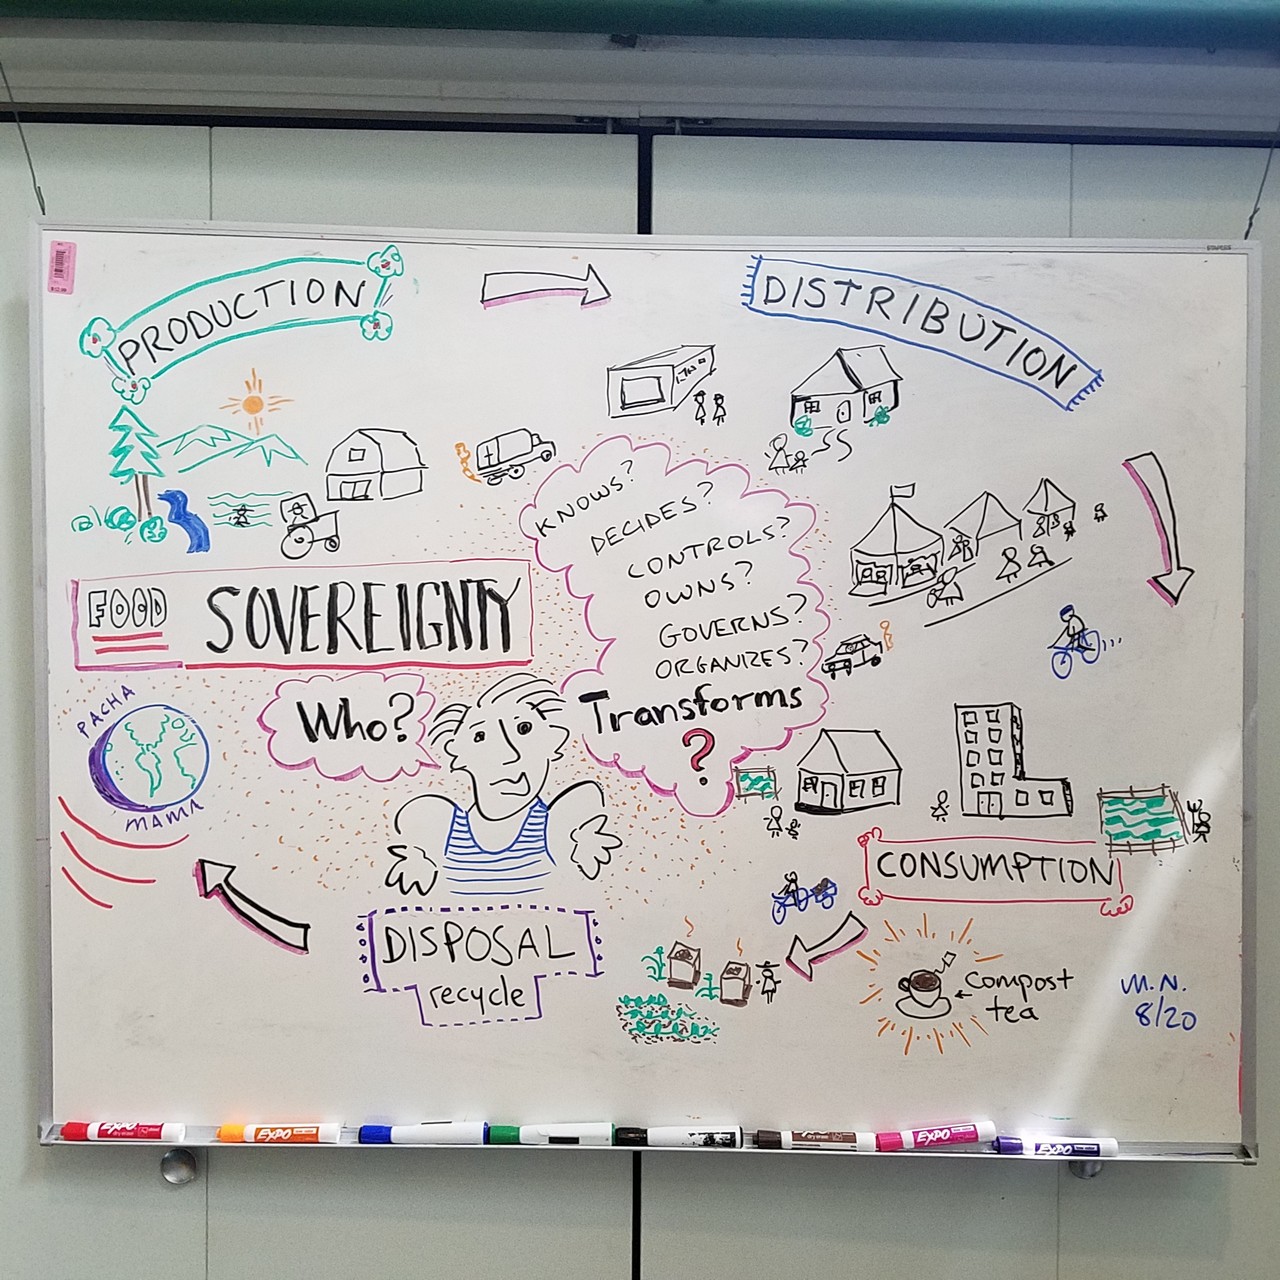 PRODUCTION
DISTRIBUTION
KNOWS?
DECIDES?
CONTROLS?
OWNS?
GOVERNS?
ORGANIZES?
Transforms
?
FOOD SOVEREIGNTY
Who?
PACHA
MAMA
CONSUMPTION
DISPOSAL
recycle
Compost
tea
M.N.
8/20
STAPLES
EXPO
EXPO
EXPO
EXPO
EXPO